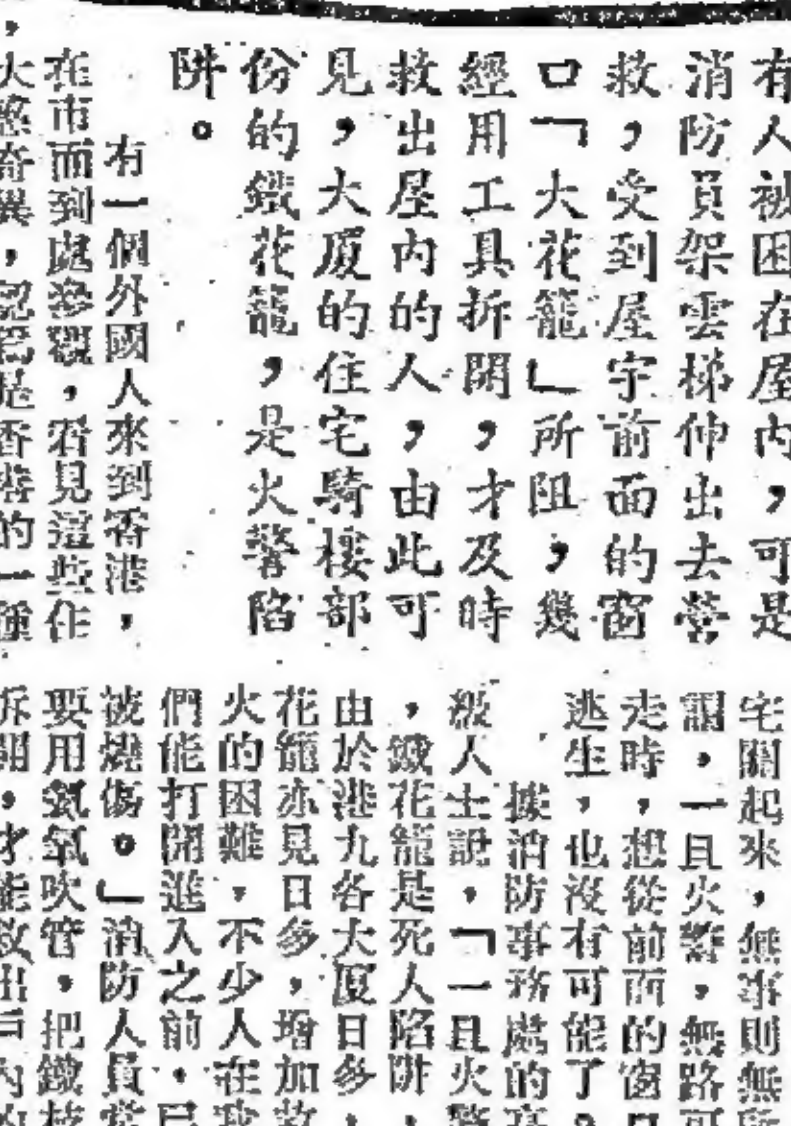 有人被困在屋內，可是
消防員架雲梯伸出去營
救，受到屋宇前面的窗
口「大花籠」所阻，幾
經用工具拆開，才及時
救出屋內的人，由此可
見，大厦的住宅騎樓部
份的鐵花籠，是火警陷
阱。
有一個外國人來到香港，
在市而到處參觀，看見這些住
大感奇異，認為是香港的一種
宅關起來，無事則無所
謂，一旦火警，無路可
走時，想從前面的窗口
逃生，也沒有可能了。
據消防事務處的高
級人士說，「一旦火警
，鐵花籠是死人陷阱，
由於港九各大厦日多，
花籠亦見日多，增加救
火的困難，不少人在我
們能打開進入之前，已
被燒傷。」消防人員常
要用氧氣吹管，把鐵枝
拆開，才能救出戶內的